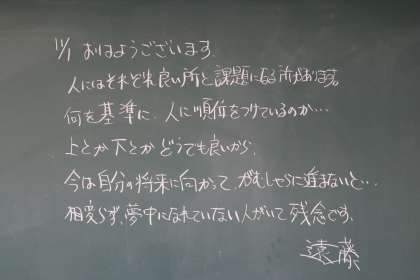 11/1 おはようございます。
人にはそれぞれ良い所と課題になる所があります。
何を基準に、人に順位をつけているのか…
上とか下とかどうでも良いから、
今は自分の将来に向かって、がむしゃらに進まないと…
相変らず、夢中になれていない人がいて残念です。
遠藤